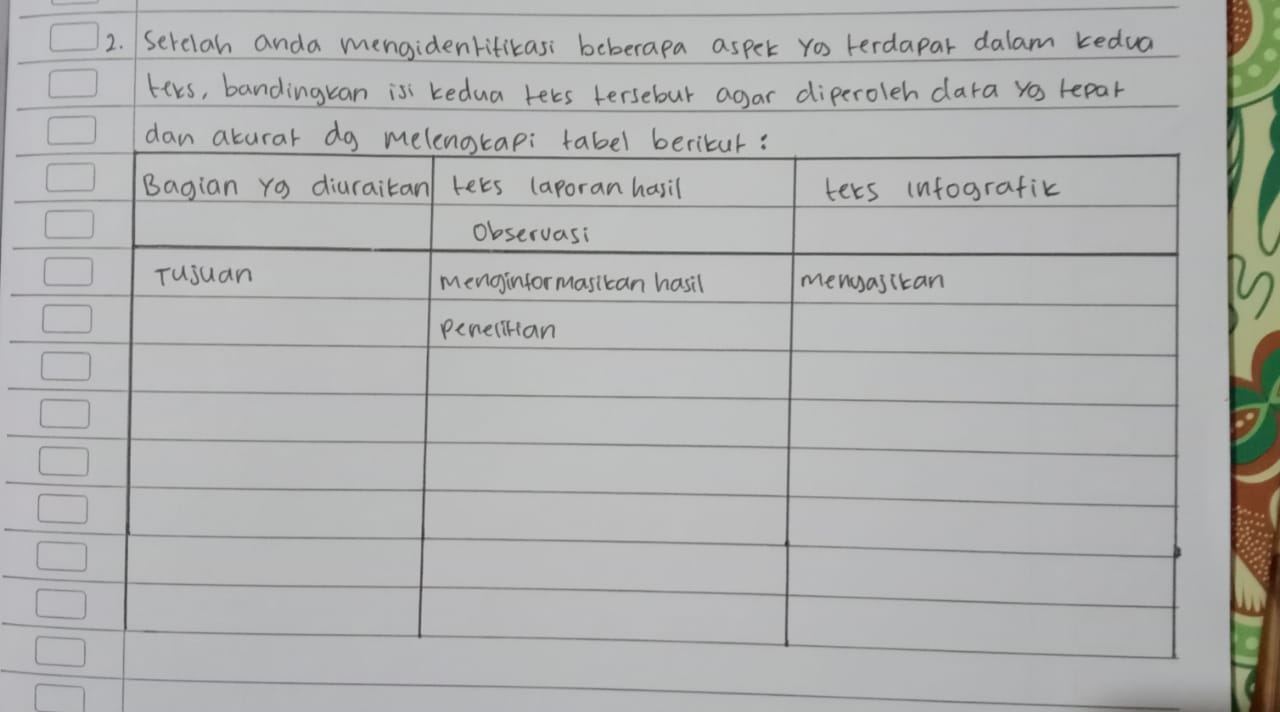 2. Setelah anda mengidentifikasi beberapa aspek yg terdapat dalam kedua
teks, bandingkan isi kedua teks tersebut agar diperoleh data yg tepat
dan akurat dg melengkapi tabel berikut :
Bagian yg diuraikan teks laporan hasil teks infografik
Observasi
Tujuan menginformasikan hasil menyajikan
penelitian